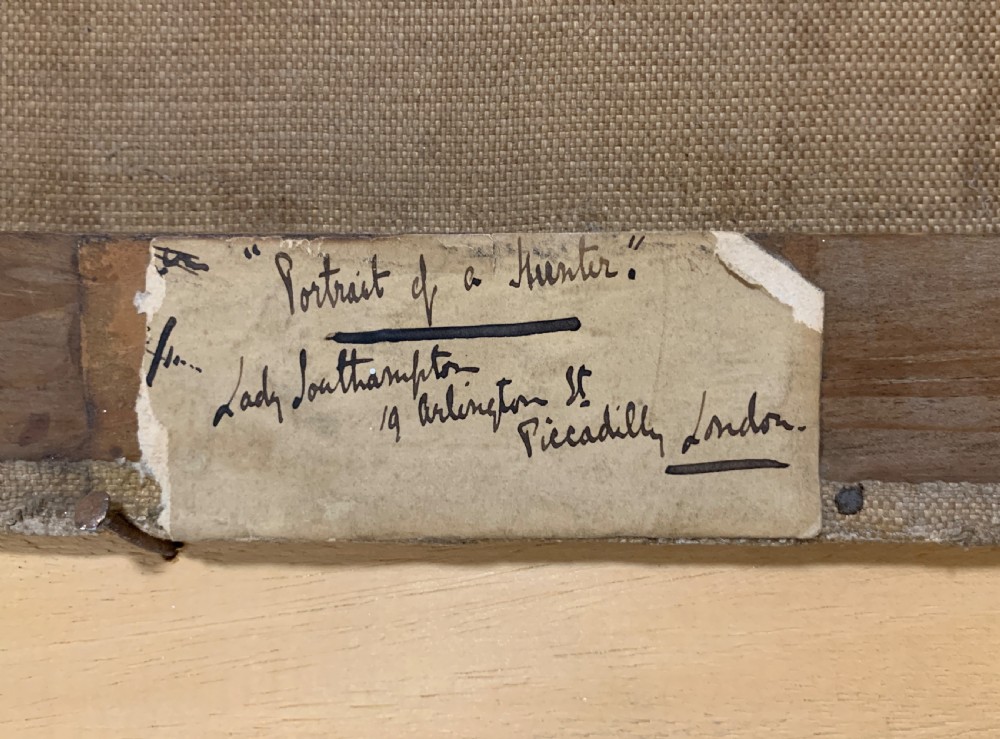 "Portrait of a Hunter".
Lady Southampton
19 Arlington St
Piccadilly London.